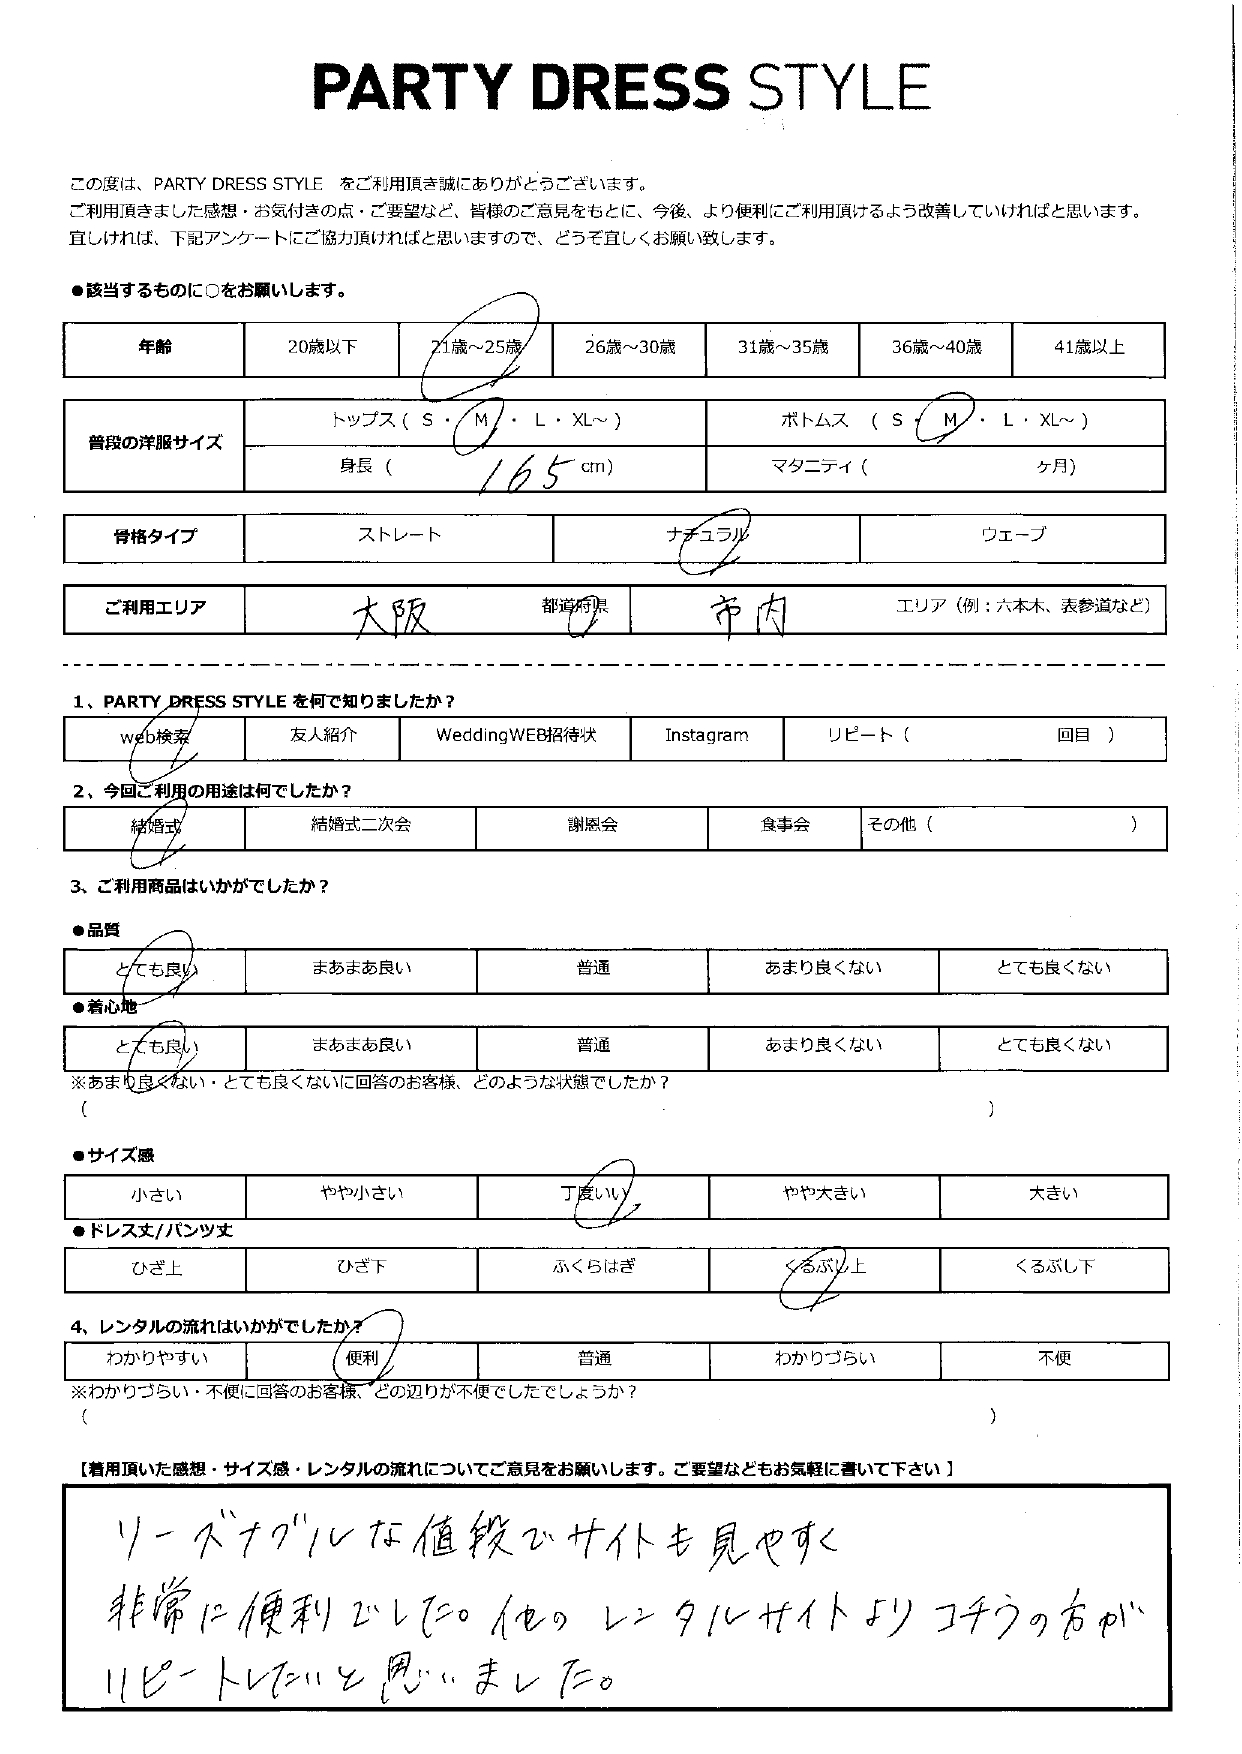 PARTY DRESS STYLE
この度は、PARTY DRESS STYLE をご利用頂き誠にありがとうございます。
ご利用頂きました感想・お気付きの点・ご要望など、皆様のご意見をもとに、今後、より便利にご利用頂けるよう改善していければと思います。
宜しければ、下記アンケートにご協力頂ければと思いますので、どうぞ宜しくお願い致します。
●該当するものに○をお願いします。
年齢 20歳以下 21歳～25歳 26歳～30歳 31歳～35歳 36歳～40歳 41歳以上
普段の洋服サイズ トップス ( S ・ M ・ L ・ XL～ ) ボトムス ( S ・ M ・ L ・ XL～ )
身長 ( 165 cm) マタニティ ( ヶ月)
骨格タイプ ストレート ナチュラル ウェーブ
ご利用エリア 大阪 都道府県 市内 エリア（例：六本木、表参道など）
1、PARTY DRESS STYLE を何で知りましたか？
web検索 友人紹介 WeddingWEB招待状 Instagram リピート（ 回目 ）
2、今回ご利用の用途は何でしたか？
結婚式 結婚式二次会 謝恩会 食事会 その他（ ）
3、ご利用商品はいかがでしたか？
●品質
とても良い まあまあ良い 普通 あまり良くない とても良くない
●着心地
とても良い まあまあ良い 普通 あまり良くない とても良くない
※あまり良くない・とても良くないに回答のお客様、どのような状態でしたか？
( )
●サイズ感
小さい やや小さい 丁度いい やや大きい 大きい
●ドレス丈/パンツ丈
ひざ上 ひざ下 ふくらはぎ くるぶし上 くるぶし下
4、レンタルの流れはいかがでしたか？
わかりやすい 便利 普通 わかりづらい 不便
※わかりづらい・不便に回答のお客様、どの辺りが不便でしたでしょうか？
( )
【着用頂いた感想・サイズ感・レンタルの流れについてご意見をお願いします。ご要望などもお気軽に書いて下さい 】
リーズナブルな値段でサイトも見やすく
非常に便利でした。他の レンタルサイトより コチラの方が
リピートしたいと思いました。